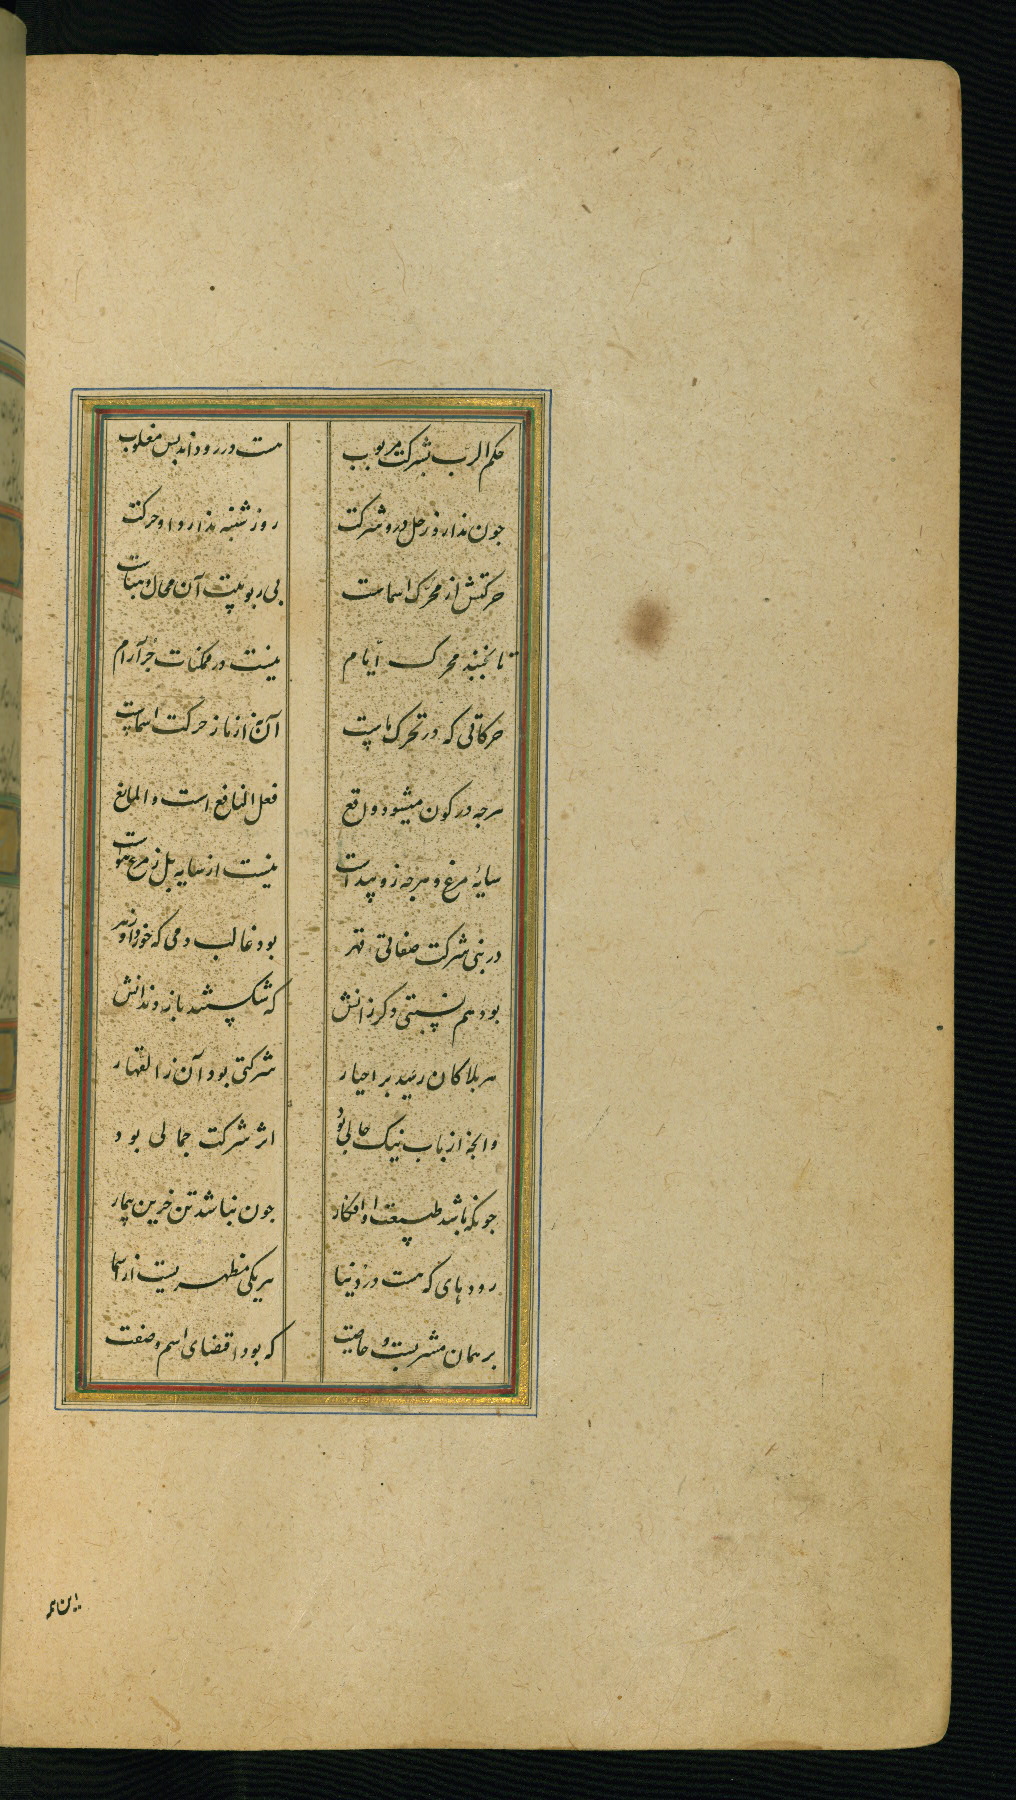 حکم الرب بشرکت مربوب هست در رود اندبس مغلوب
جون ندارد زحل درو شرکت روز شنبه ندارد او حرکت
حرکتش از محرک اسماست بی ربوبیت آن محال و هباست
تا نجنبد محرک ایام نیست در ممکنات جز آرام
حرکاتی که در تحرک ماست آن نه از ما ز حرکت اسماست
هرجه در کون میشود واقع فعل النافع است و المانع
سایهٔ مرغ و هرجه زو پیداست نیست از سایه بل ز مرغ هواست
در بنی شرکت صفاتی قهر بود غالب دمی که خورد او زهر
بود هم نسبتی وکر زانش که شکستند بازه دندانش
هر بلا کان رسید بر احیار شرکتی بود آن ز القهار
وانجه از باب نیک حالی بود اثر شرکت جمالی بود
جونکه باشد طبیعت او افکار جون نباشد تن حزین بیمار
رودهای که هست در دنیا هر یکی مظهریست از اسما
بر همان مشربست و خاصیت که بود اقتضای اسم و صفت
این همه